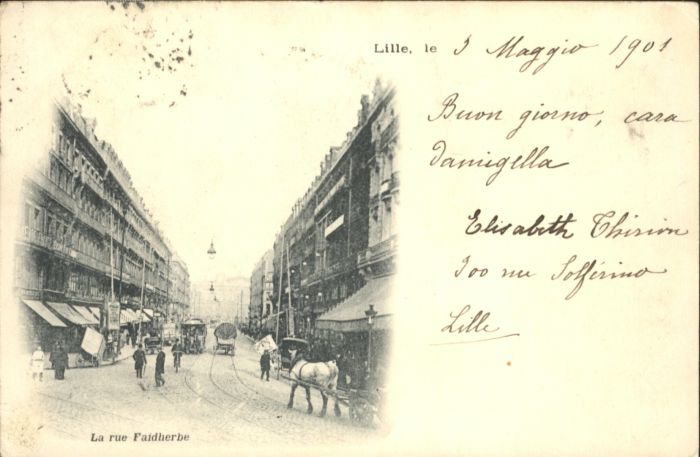 Lille, le 3 Maggio 1901
Buon giorno, cara
Damigella
Elisabeth Thirion
300 rue Solférino
Lille
La rue Faidherbe